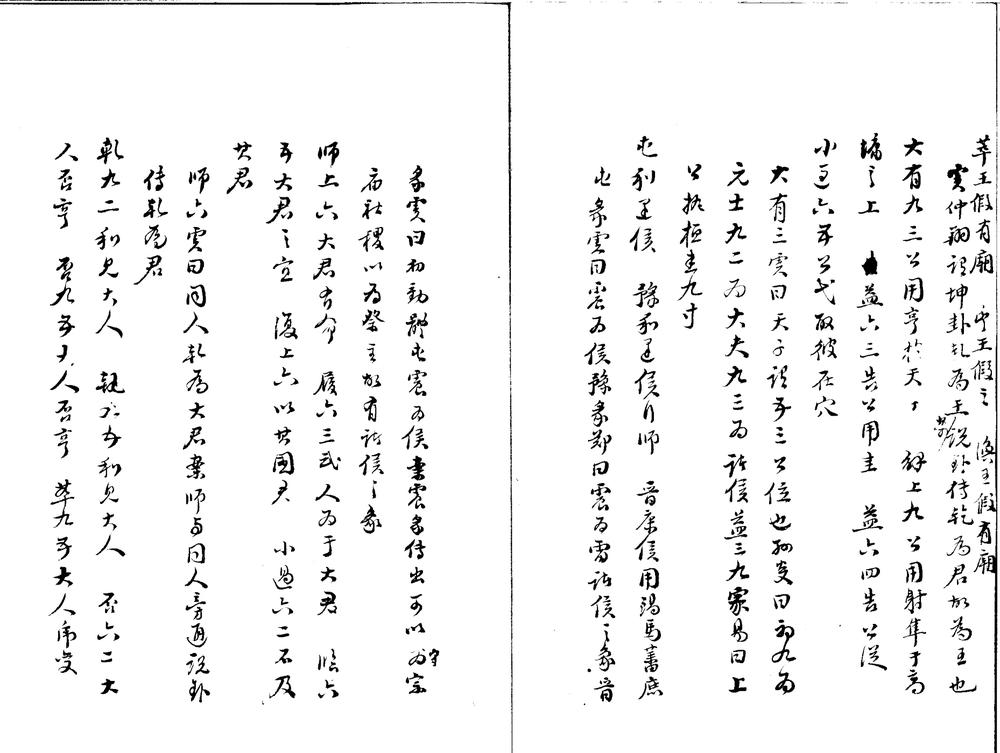 萃王假有廟　丰王假之　渙王假有廟
虞仲翔說坤卦乾為王案說卦傳乾為君故為王也
大有九三公用亨於天子　解上九公用射隼于高
墉之上　益六三告公用圭　益六四告公從
小過六五公弋取彼在穴
大有三虞曰天子謂五三公位也　爻曰初九為
元士九二為大夫九三為諸侯益三九家易曰上
公執桓圭九寸
屯利建侯　豫利建侯行師　晉康侯用錫馬蕃庶
屯彖虞曰震為侯豫彖鄭曰震為雷諸侯之象晉
彖虞曰初動體屯震為侯案震彖傳出可以守為宗
廟社稷以為祭主故有諸侯之象
師上六大君有命　履六三武人為于大君　臨六
五大君之宜　復上六以其國君　小過六二不及
其君
師六虞曰同人乾為大君案師與同人旁通說卦
傳乾為君
乾九二利見大人　乾九五利見大人　否六二大
人否亨　否九五大人否亨　萃九五大人虎變